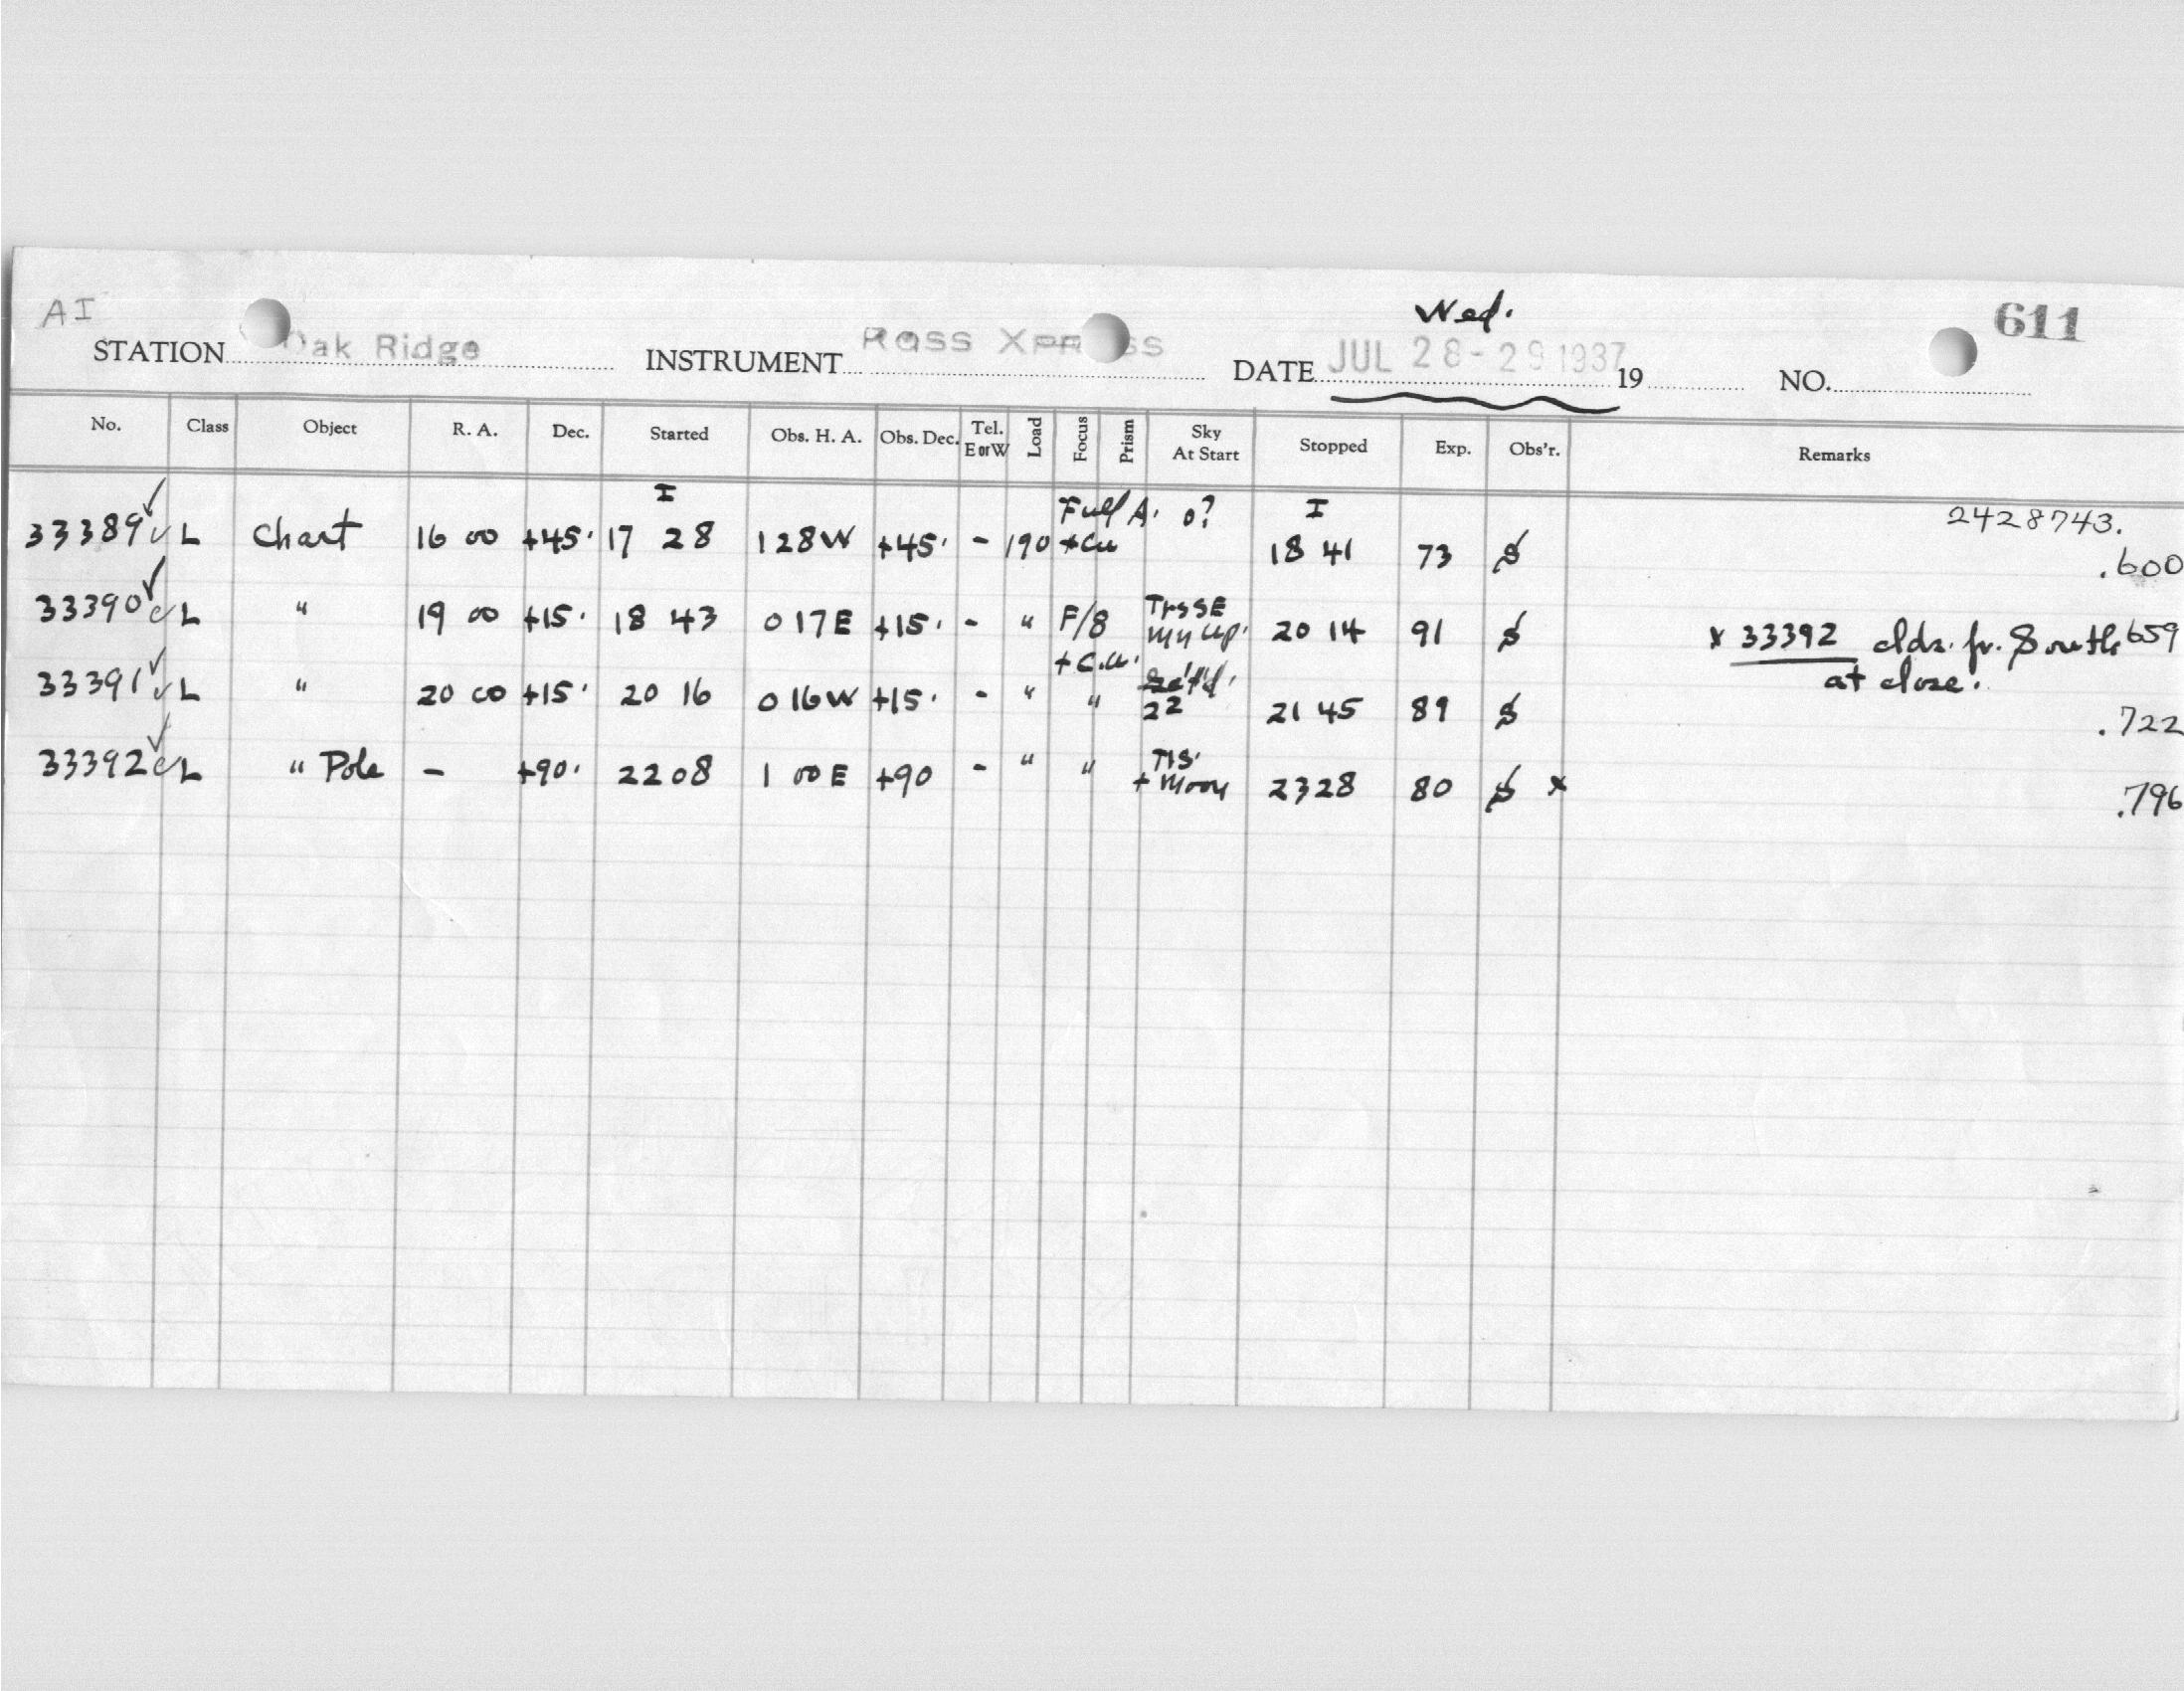 AI
Wed.
611
STATION Oak Ridge INSTRUMENT Ross Xpress DATE JUL 28-29 1937 19 NO.
No. Class Object R. A. Dec. Started Obs. H. A. Obs. Dec. Tel. E or W Load Focus Prism Sky At Start Stopped Exp. Obs'r. Remarks
I Full A. 0? I 2428743.
33389 L Chart 16 00 +45° 17 28 1 28 W +45° - 190 +Cu 18 41 73 .600
33390 L " 19 00 +15° 18 43 0 17 E +15° - " F/8 20 14 91 x 33392 clds. fr. South 659
+ C.U. at close.
33391 L " 20 00 +15° 20 16 0 16 W +15° - " " 22 21 45 89 .722
33392 L " Pole - +90° 22 08 1 00 E +90 - " " + Moon 23 28 80 x .796